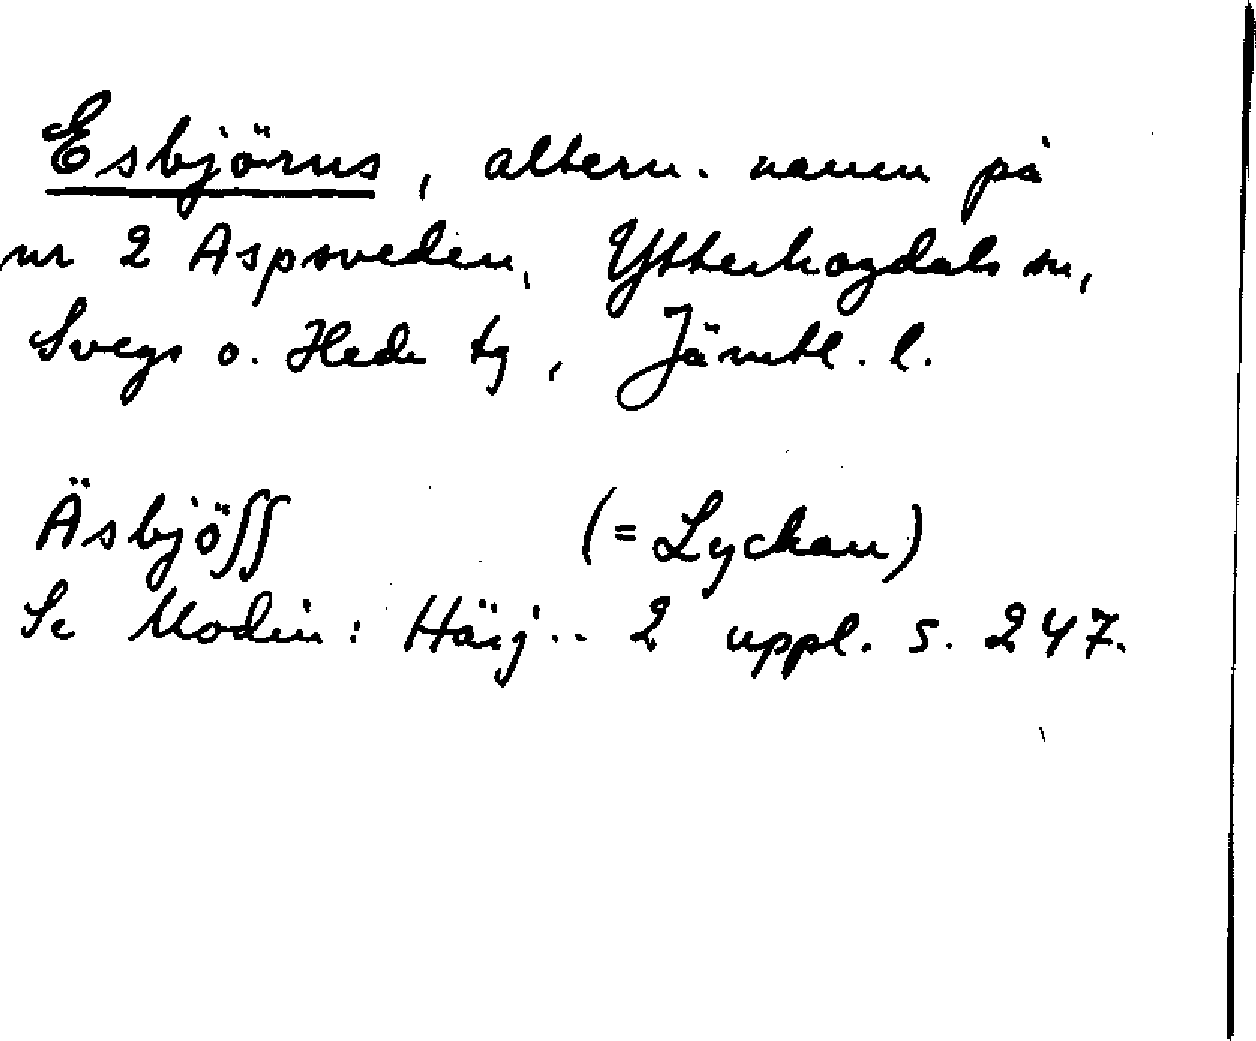 Esbjörns, altern. namn på
nr 2 Aspsveden, Ytterhogdals sn,
Svegs o. Hede tg, Jämtl. l.
Äsbjöʃʃ (= Lyckan)
Se Modin: Härj.. 2 uppl. s. 247.